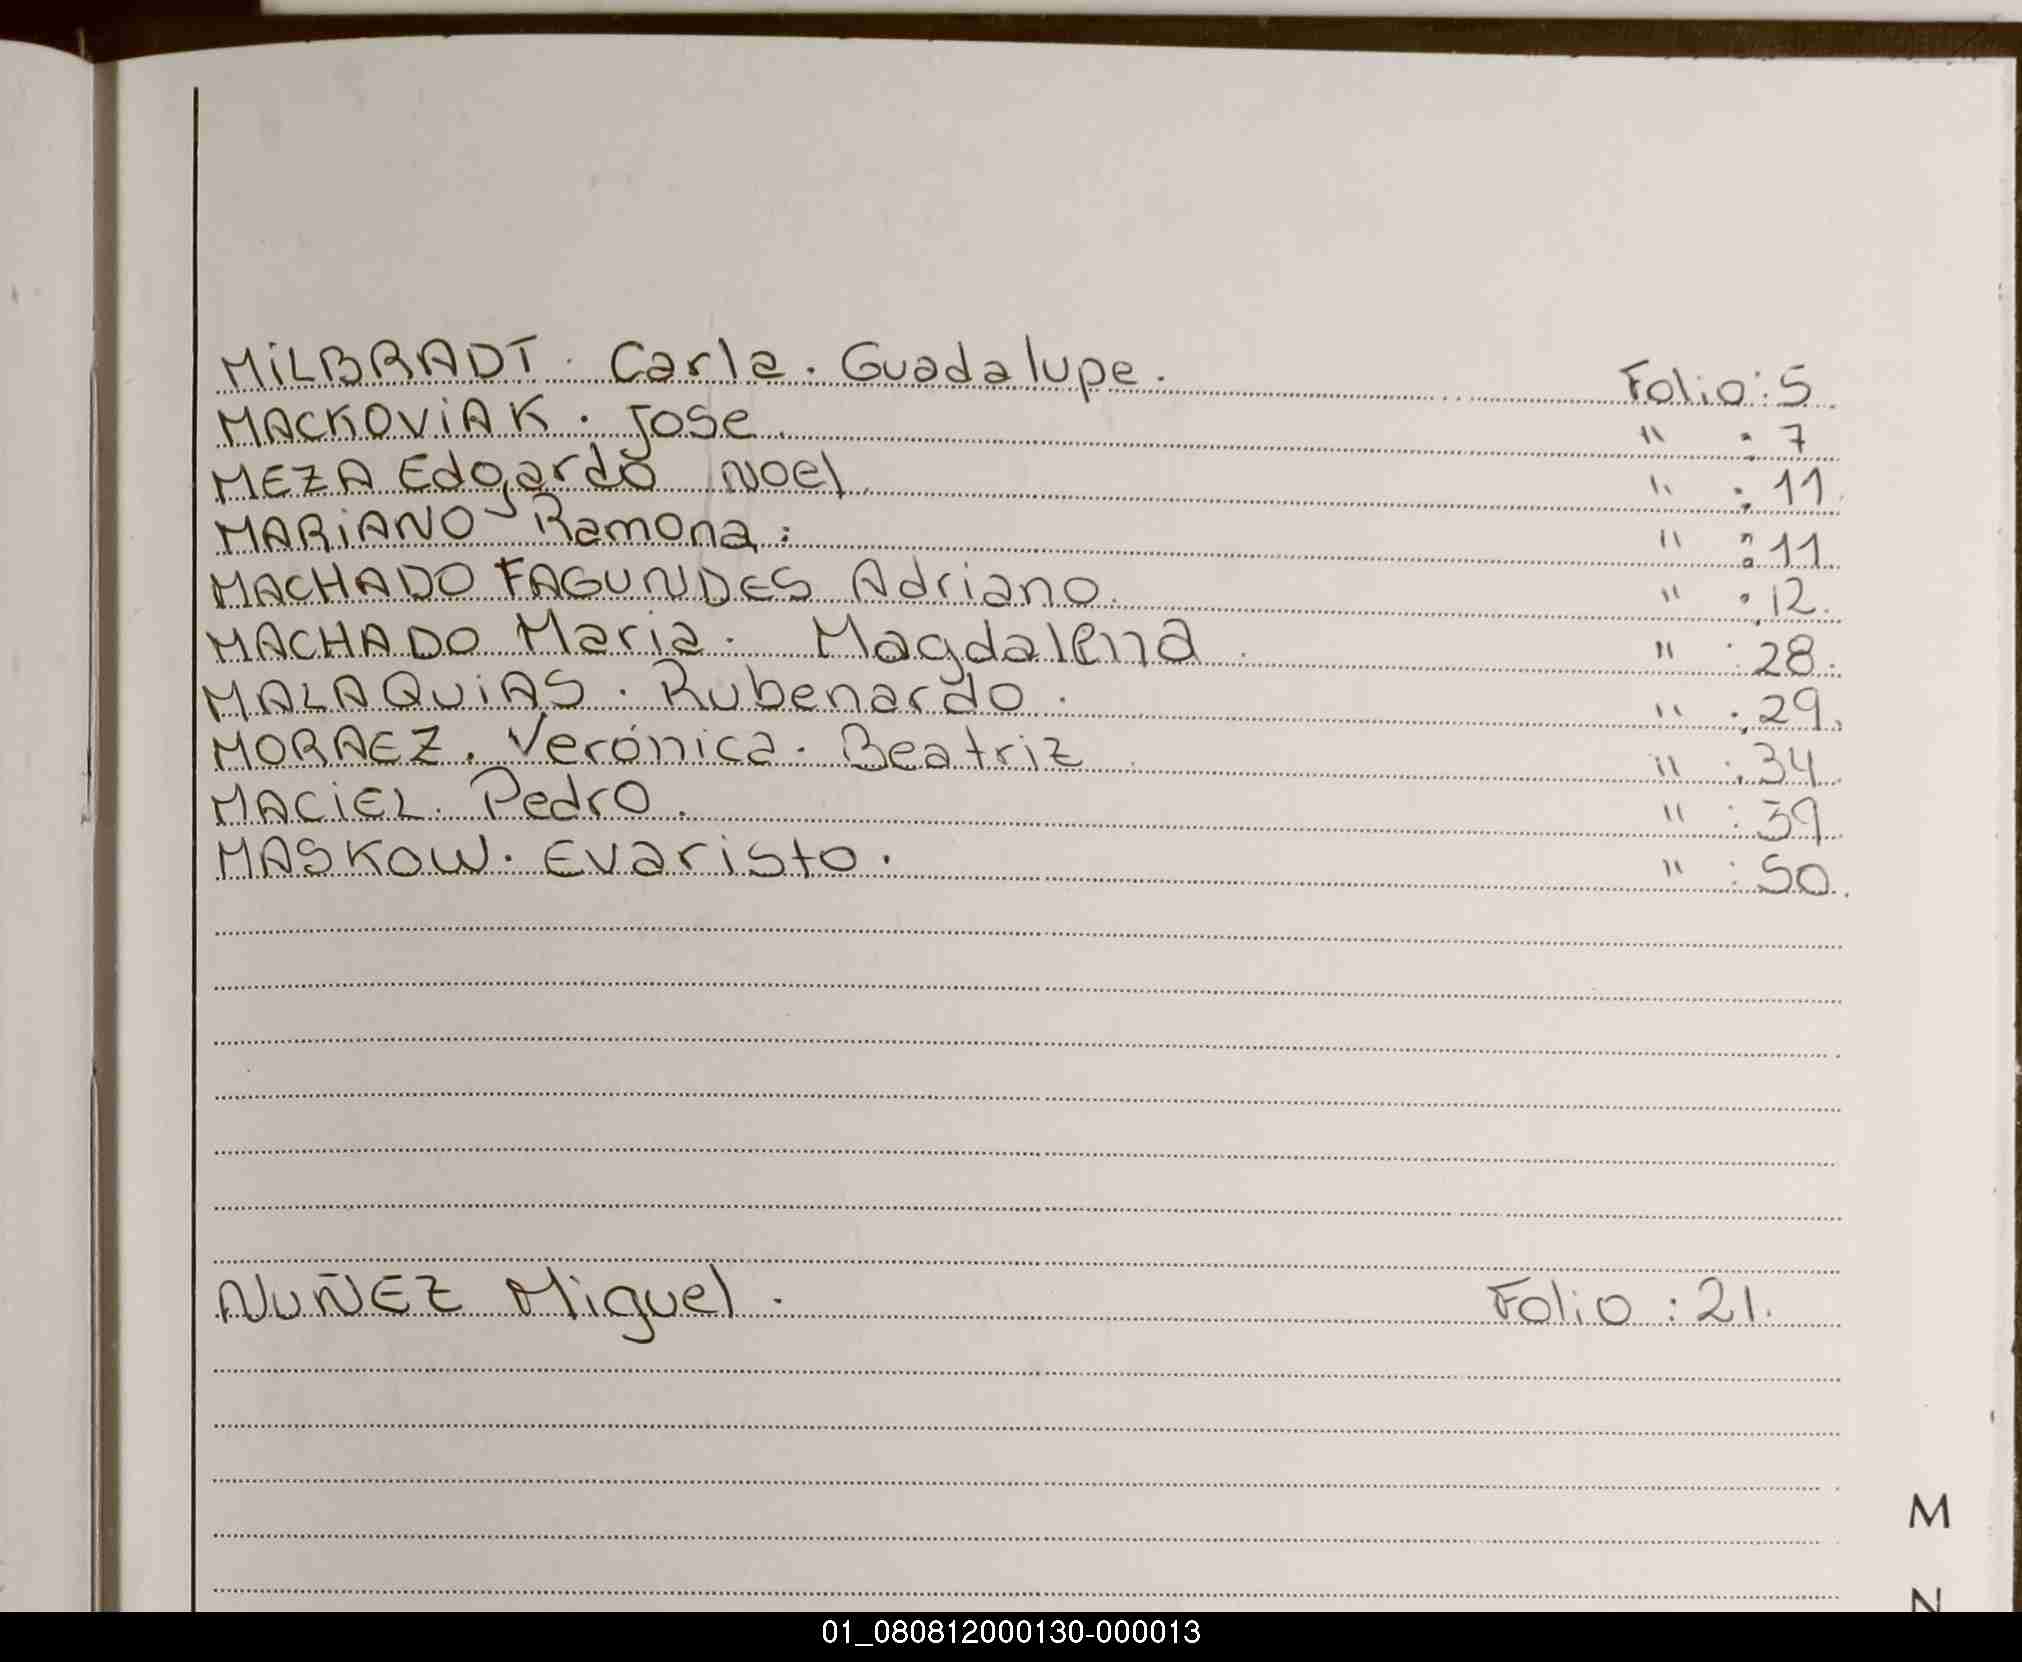 MiLBRADT. Carla. Guadalupe. Folio: 5.
MACKOViAK. Jose. " : 7
MEZA Edgardo Noel. " : 11.
MARiANO Ramona: " : 11.
MACHADO FAGUNDES Adriano. " : 12.
MACHADO Maria. Magdalena. " : 28.
MALAQUiAS. Rubenardo. " : 29.
MORAEZ. Verónica. Beatriz. " : 34.
MACiEL. Pedro. " : 39.
MASKOW. Evaristo. " : 50.
NUÑEZ Miguel. Folio : 21.
M
N
01_080812000130-000013